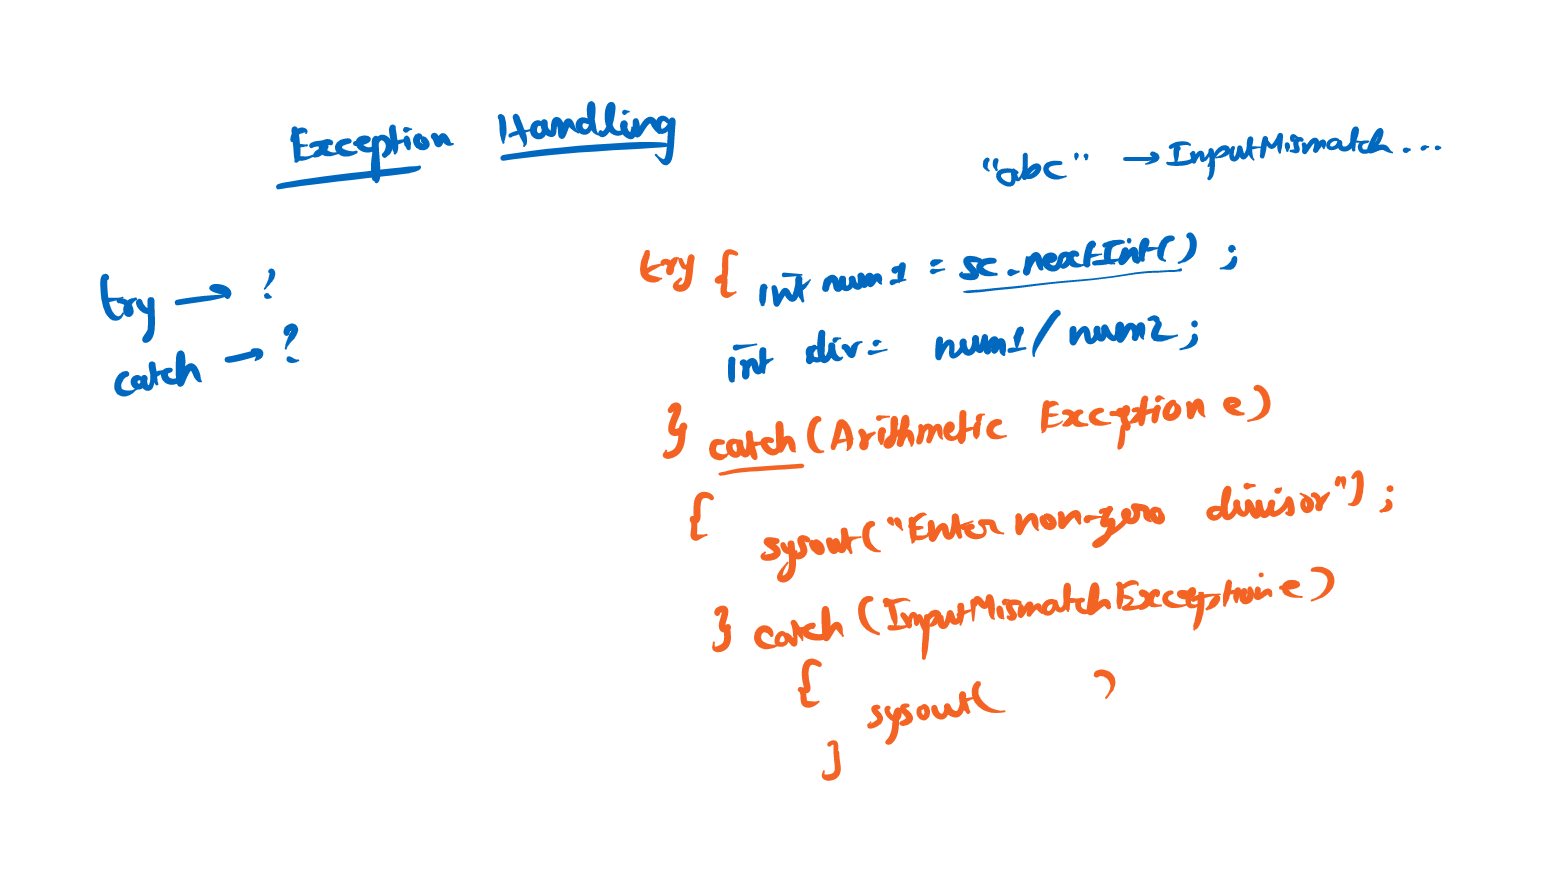 Exception Handling
"abc" → InputMismatch...
try → ?
catch → ?
try { int num1 = sc.nextInt() ;
int div = num1/num2;
} catch (Arithmetic Exception e)
{
sysout("Enter non-zero divisor");
} catch (InputMismatchException e)
{
sysout( )
}